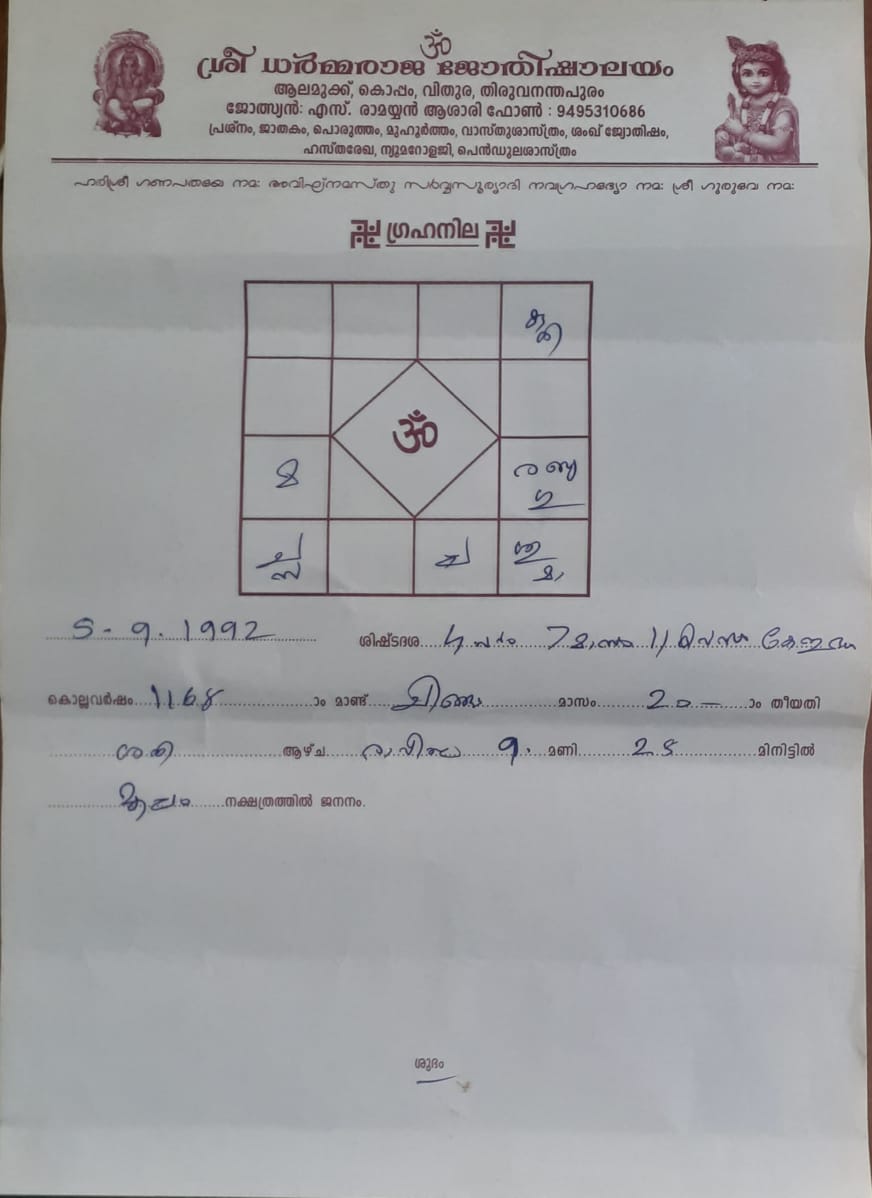 ॐ
ശ്രീ ധർമ്മരാജ ജ്യോതിഷാലയം
ആലമുക്ക്, കൊപ്പം, വിതുര, തിരുവനന്തപുരം
ജോത്സ്യൻ: എസ്. രാമയ്യൻ ആശാരി ഫോൺ : 9495310686
പ്രശ്നം, ജാതകം, പൊരുത്തം, മുഹൂർത്തം, വാസ്തുശാസ്ത്രം, ശംഖ് ജ്യോതിഷം,
ഹസ്തരേഖ, ന്യൂമറോളജി, പെൻഡുലശാസ്ത്രം
ഹരിശ്രീ ഗണപതയെ നമഃ അവിഘ്നമസ്തു സർവ്വസൂര്യാദി നവഗ്രഹദ്യോ നമഃ ശ്രീ ഗുരുവേ നമഃ
卐 ഗ്രഹനില 卐
ॐ
മ
ച
5-9.1992 ശിഷ്ടദശ 7
കൊല്ലവർഷം 1168 ാം മാണ്ട് ചിങ്ങം മാസം 20 ാം തീയതി
ശനി ആഴ്ച രാവിലെ 9. മണി 25 മിനിട്ടിൽ
നക്ഷത്രത്തിൽ ജനനം.
ശുഭം